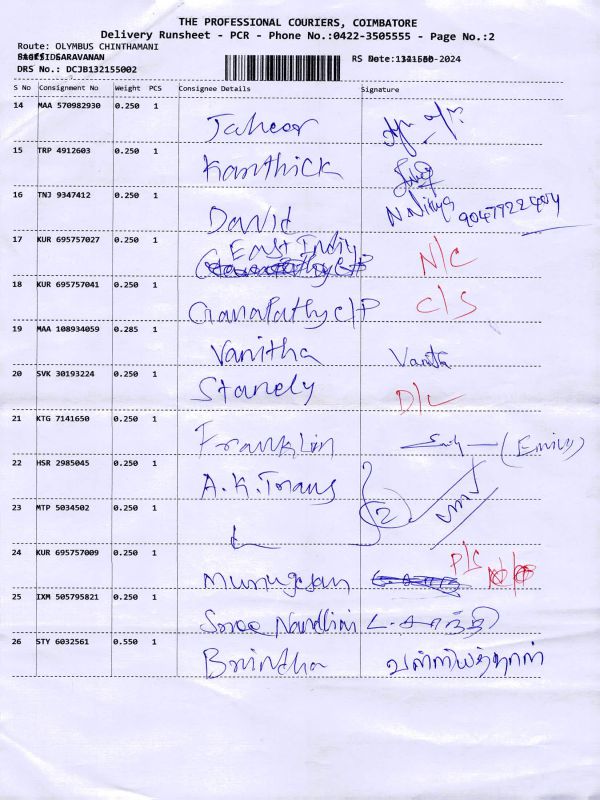 THE PROFESSIONAL COURIERS, COIMBATORE
Delivery Runsheet - PCR - Phone No.:0422-3505555 - Page No.:2
Route: OLYMBUS CHINTHAMANI
SARAVANAN
RS -2024
DRS No.: DCJB132155002
S No Consignment No Weight PCS Consignee Details Signature
14 MAA 570982930 0.250 1
Jaheer
15 TRP 4912603 0.250 1
Kanthick
16 TNJ 9347412 0.250 1
David N. Nithya
17 KUR 695757027 0.250 1
East India N/C
18 KUR 695757041 0.250 1
GanaPathy c/P C/S
19 MAA 108934059 0.285 1
Vanitha Vanitha
20 SVK 30193224 0.250 1
Stanely D/L
21 KTG 7141650 0.250 1
Franklin
22 HSR 2985045 0.250 1
A.K. Trans
2
23 MTP 5034502 0.250 1
24 KUR 695757009 0.250 1
Murugesan P/S
25 IXM 505795821 0.250 1
Sree Nandhini L. சாந்தி
26 STY 6032561 0.550 1
Brintha வள்ளியத்தாள்